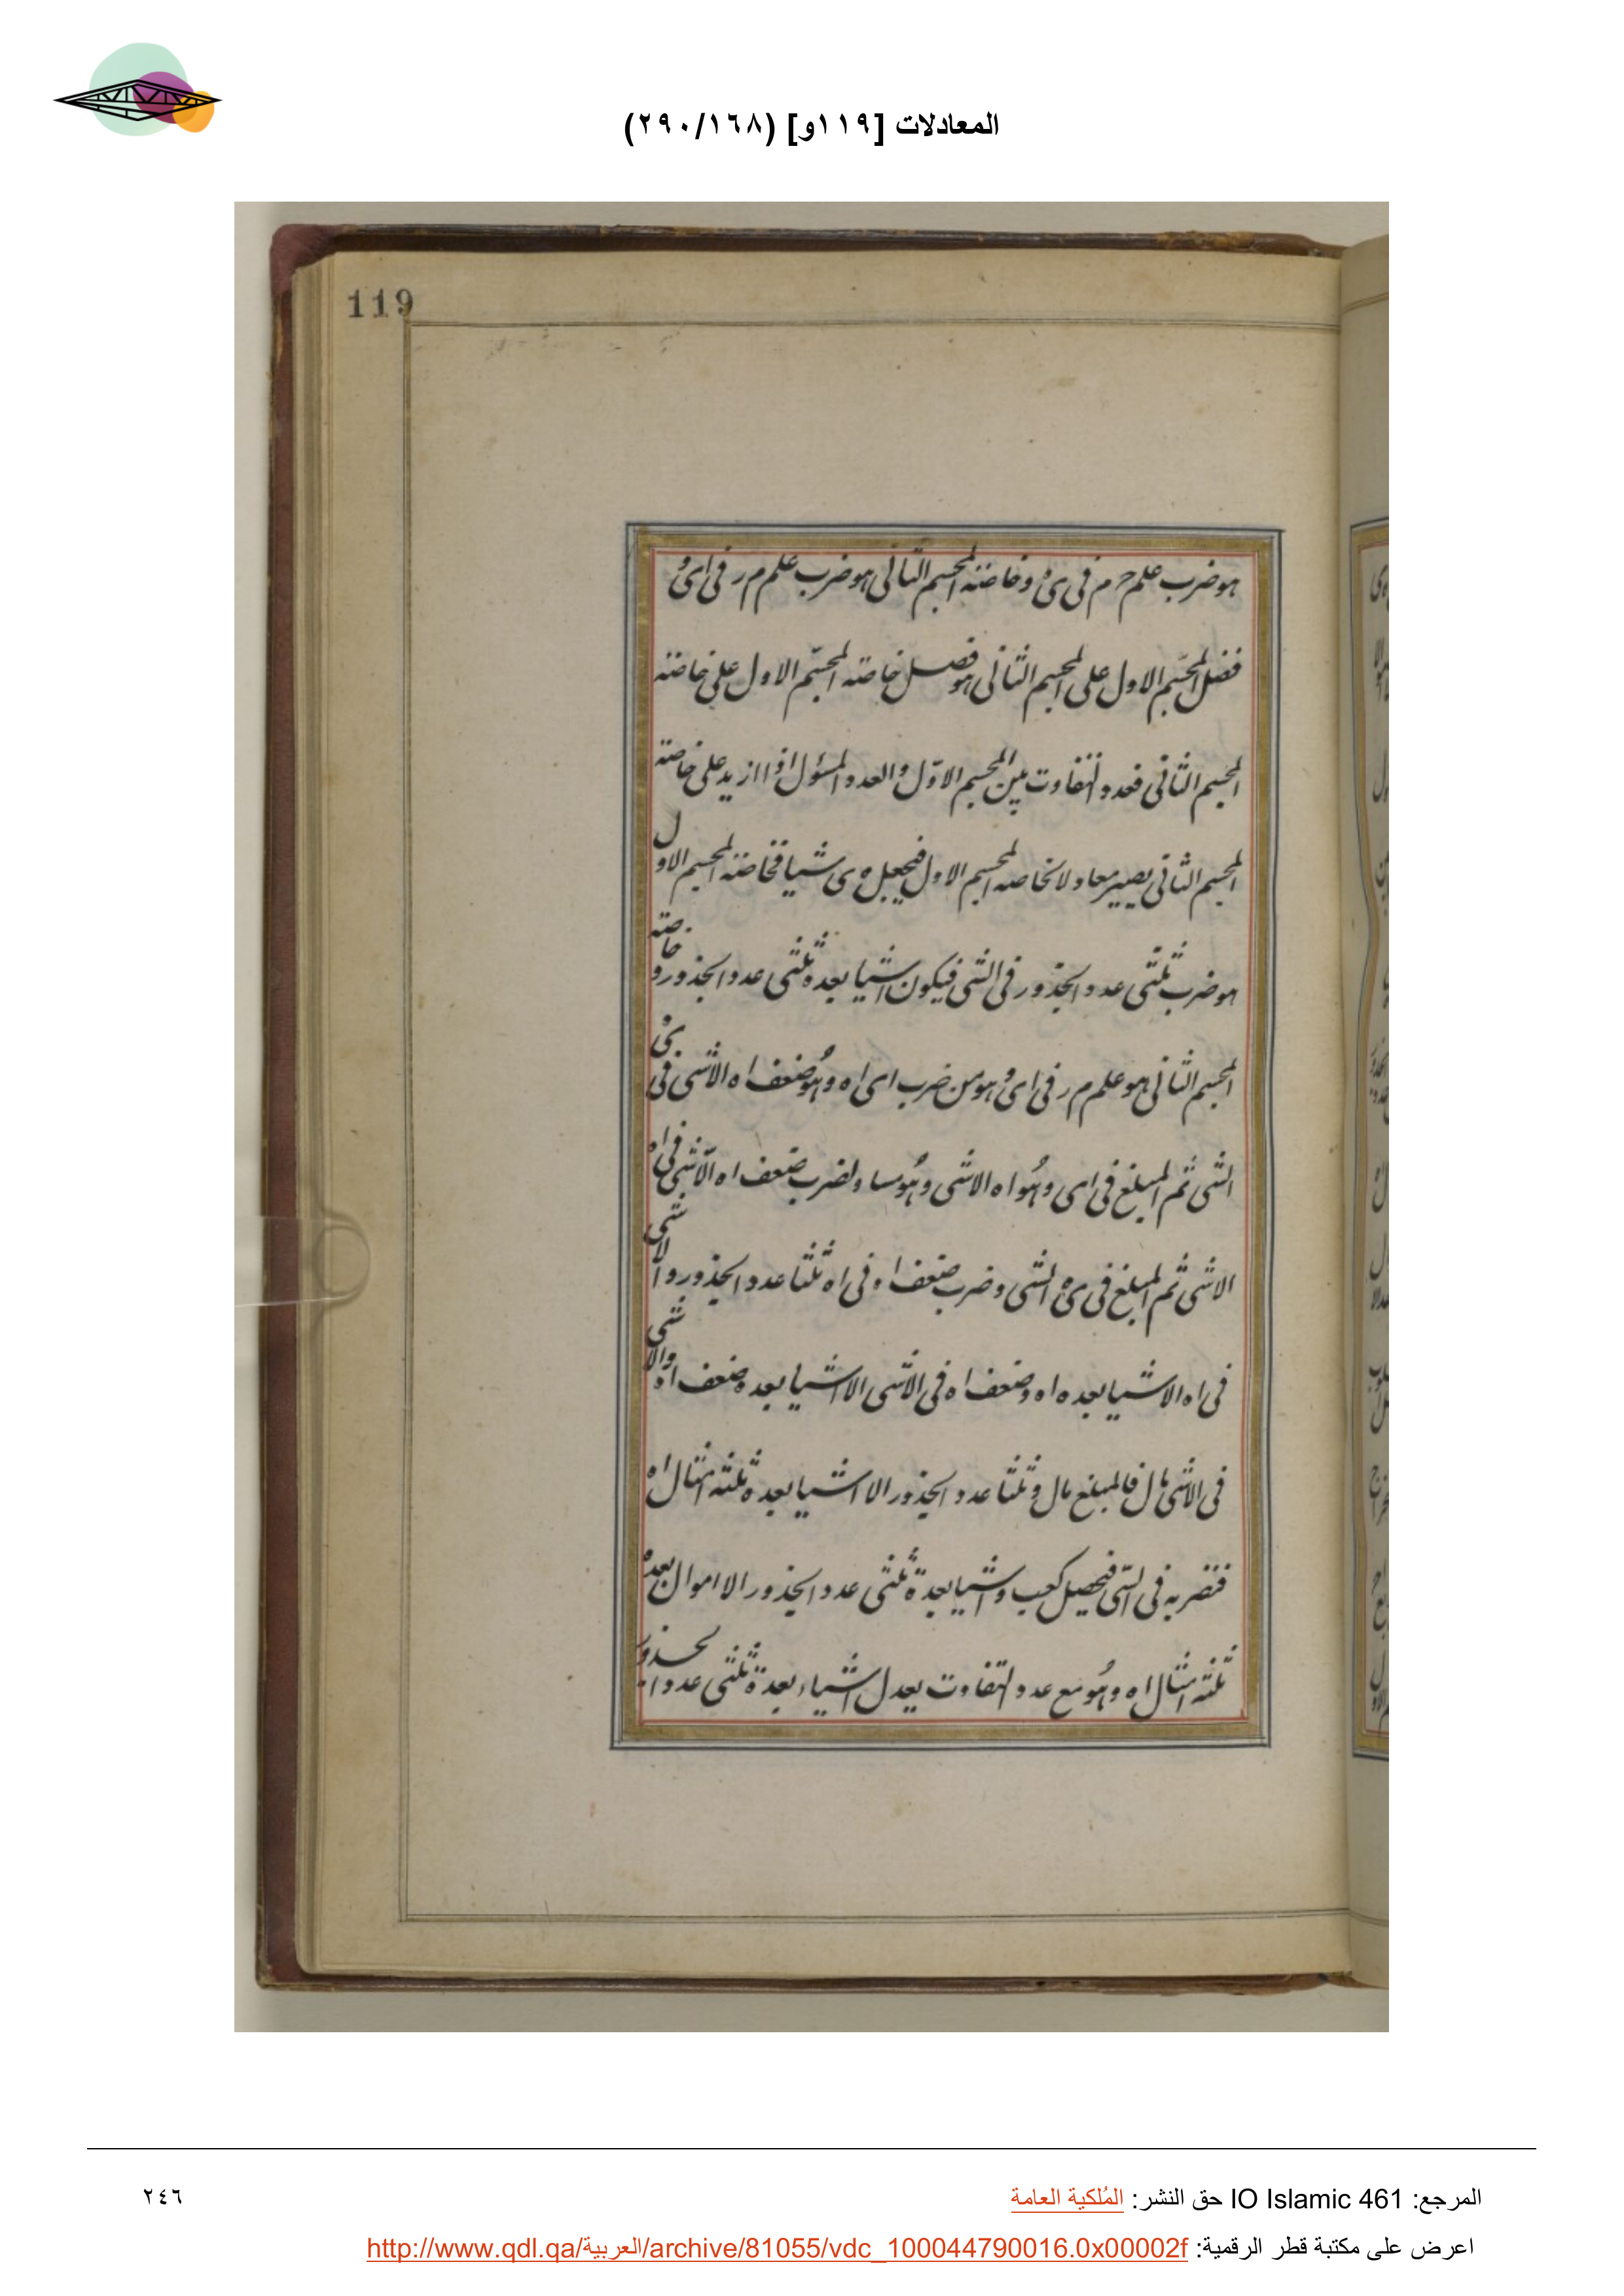 المعادلات [١١٩و] (٢٩٠/١٦٨)
119
هو ضرب علم ح م فى ى ه وخاصته المجسم الثانى هو ضرب علم م ر فى ا ى و
ففضل المجسم الاول على المجسم الثانى هو فصل خاصته المجسم الاول على خاصته
المجسم الثانى فعدد التفاوت بين المجسم الاول والعدد المسؤل اذا ازيد على خاصته
المجسم الثانى يصير معادلا لخاصته المجسم الاول فيجعل ه ى شيا فخاصته المجسم الاول
هو ضرب ثلثى عدد الجذور فى الشى فيكون اشيا بعده ثلثى عدد الجذور و خاصته
المجسم الثانى هو علم م ر فى ا ى و هو من ضرب ا ى ا ه و هو ضعف ا ه الا شى فى
الشى ثم المبلغ فى ا ى و هو ا ه الا شى و هو مساو لضرب ضعف ا ه الا شى فى ا ه
الا شى ثم المبلغ فى ى ه الشى و ضرب ضعف ا ه فى ا ه ثلثا عدد الجذور و الا شى
فى ا ه الا شيا بعده ا ه و ضعف ا ه فى الا شى الا اشيا بعده ضعف ا ه والا شى
فى الا شى مال فالمبلغ مال و ثلثا عدد الجذور الا اشيا بعده ثلثه امثال ا ه
فنضربه فى الشى فيحصل كعب و اشيا بعدة ثلثى عدد الجذور الا اموال بعدة
ثلثه امثال ا ه و هو مع عدد التفاوت يعدل اشياء بعدة ثلثى عدد الجذور
المرجع: IO Islamic 461 حق النشر: المُلكية العامة
٢٤٦
اعرض على مكتبة قطر الرقمية: http://www.qdl.qa/العربية/archive/81055/vdc_100044790016.0x00002f